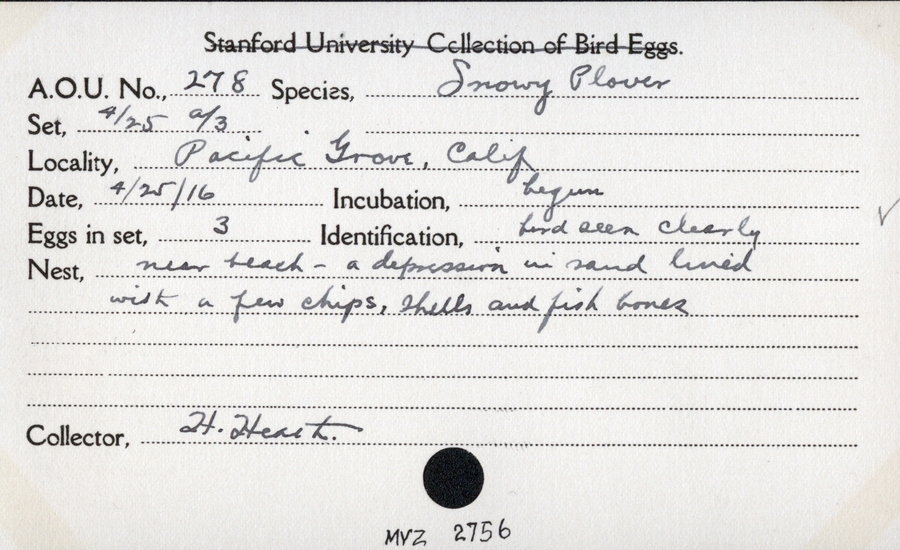 Stanford University Collection of Bird Eggs.
A.O.U. No., 278 Species, Snowy Plover
Set, 4/25 a/3
Locality, Pacific Grove, Calif
Date, 4/25/16 Incubation, begun
Eggs in set, 3 Identification, bird seen clearly
Nest, near beach - a depression in sand lined
with a few chips, shells and fish bones
Collector, H. Heath.
MVZ 2756